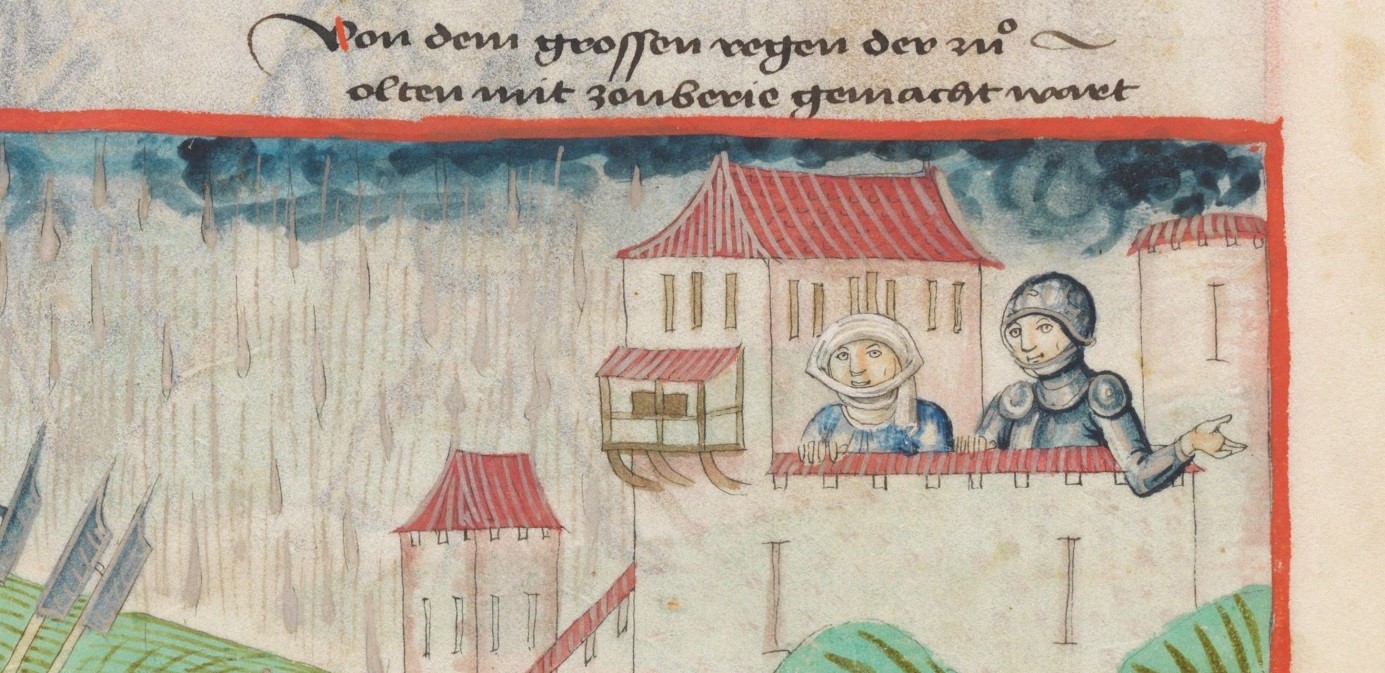 Von dem grossen regen der zuͦ
olten mit zouberie gemacht wart